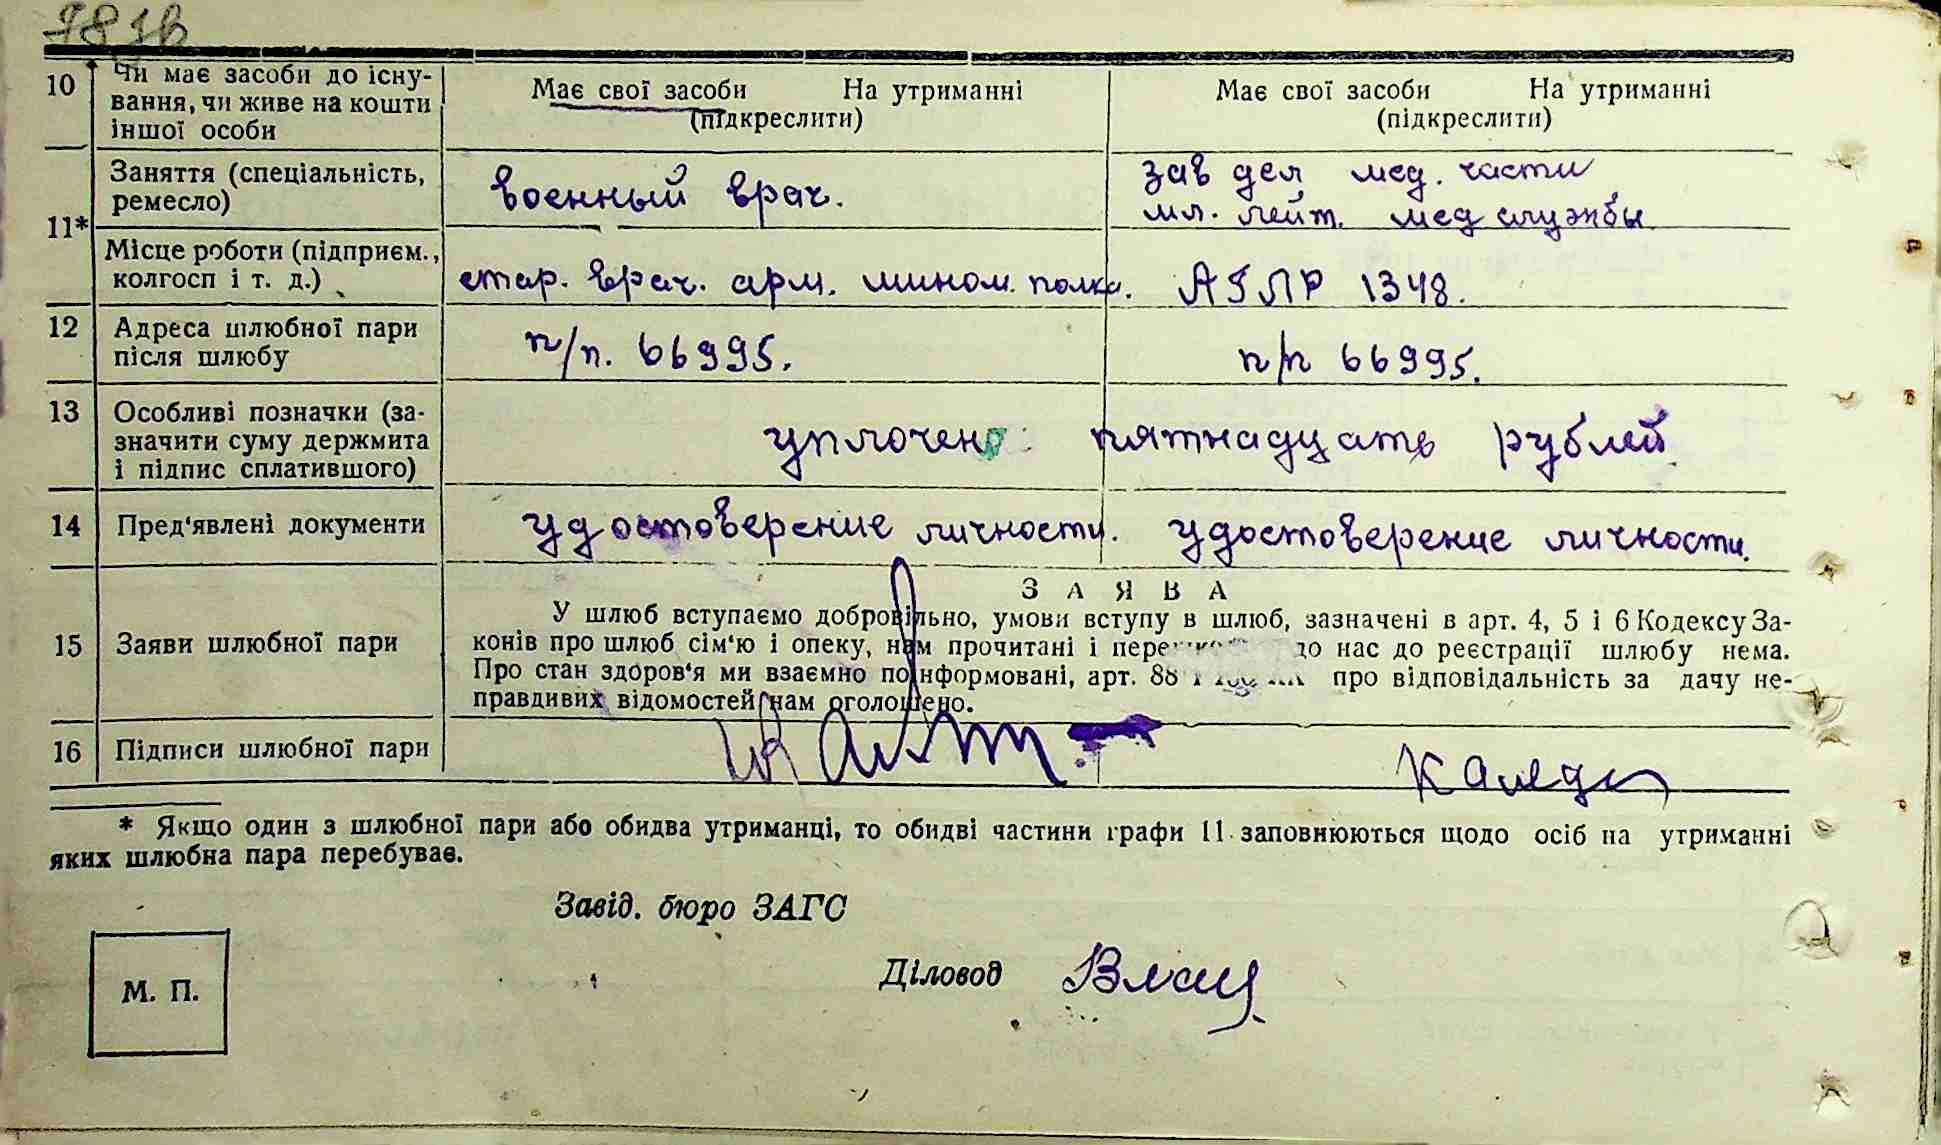 10 Чи має засоби до існу-
вання, чи живе на кошти
іншої особи
Має свої засоби На утриманні
(підкреслити)
Має свої засоби На утриманні
(підкреслити)
11*
Заняття (спеціальність,
ремесло)
военный врач.
зав дел мед. части
мл. лейт. мед службы
Місце роботи (підприєм.,
колгосп і т. д.)
стар. врач. арм. мином. полка.
АГЛР 1348.
12 Адреса шлюбної пари
після шлюбу
п/п. 66995.
п/п 66995.
13 Особливі позначки (за-
значити суму держмита
і підпис сплатившого)
уплочено пятнадцать рублей
14 Пред'явлені документи
удостоверение личности. удостоверение личности.
15 Заяви шлюбної пари
ЗАЯВА
У шлюб вступаємо добровільно, умови вступу в шлюб, зазначені в арт. 4, 5 і 6 Кодексу За-
конів про шлюб сім'ю і опеку, нам прочитані і до нас до реєстрації шлюбу нема.
Про стан здоров'я ми взаємно поінформовані, арт. 88 про відповідальність за дачу не-
правдивих відомостей нам оголошено.
16 Підписи шлюбної пари
* Якщо один з шлюбної пари або обидва утриманці, то обидві частини графи 11 заповнюються щодо осіб на утриманні
яких шлюбна пара перебуває.
Завід. бюро ЗАГС
Діловод
М. П.